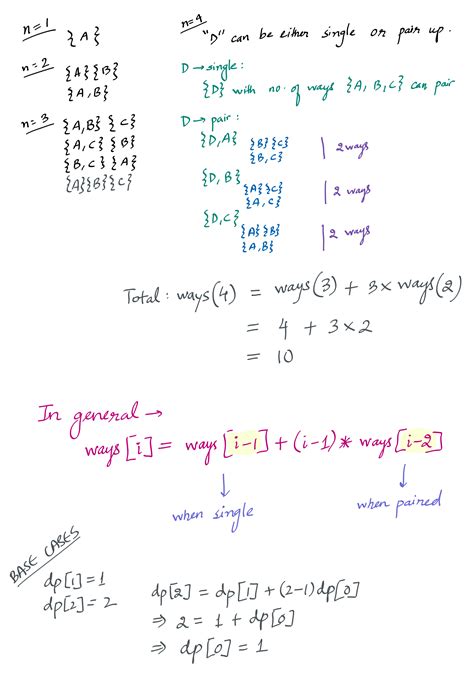 n=1
{A}
n=2
{A}{B}
{A,B}
n=3
{A,B} {C}
{A,C} {B}
{B,C} {A}
{A}{B}{C}
n=4
"D" can be either single or pair up.
D → single:
{D} with no. of ways {A, B, C} can pair
D → pair:
{D,A} {B}{C}
{B,C} | 2 ways
{D,B} {A}{C}
{A,C} | 2 ways
{D,C}
{A}{B}
{A,B} | 2 ways
Total: ways(4) = ways(3) + 3x ways(2)
= 4 + 3x2
= 10
In general →
ways[i] = ways[i-1] + (i-1) * ways[i-2]
↓ ↓
when single when paired
BASE CASES
dp[1] = 1
dp[2] = 2
dp[2] = dp[1] + (2-1)dp[0]
⇒ 2 = 1 + dp[0]
⇒ dp[0] = 1